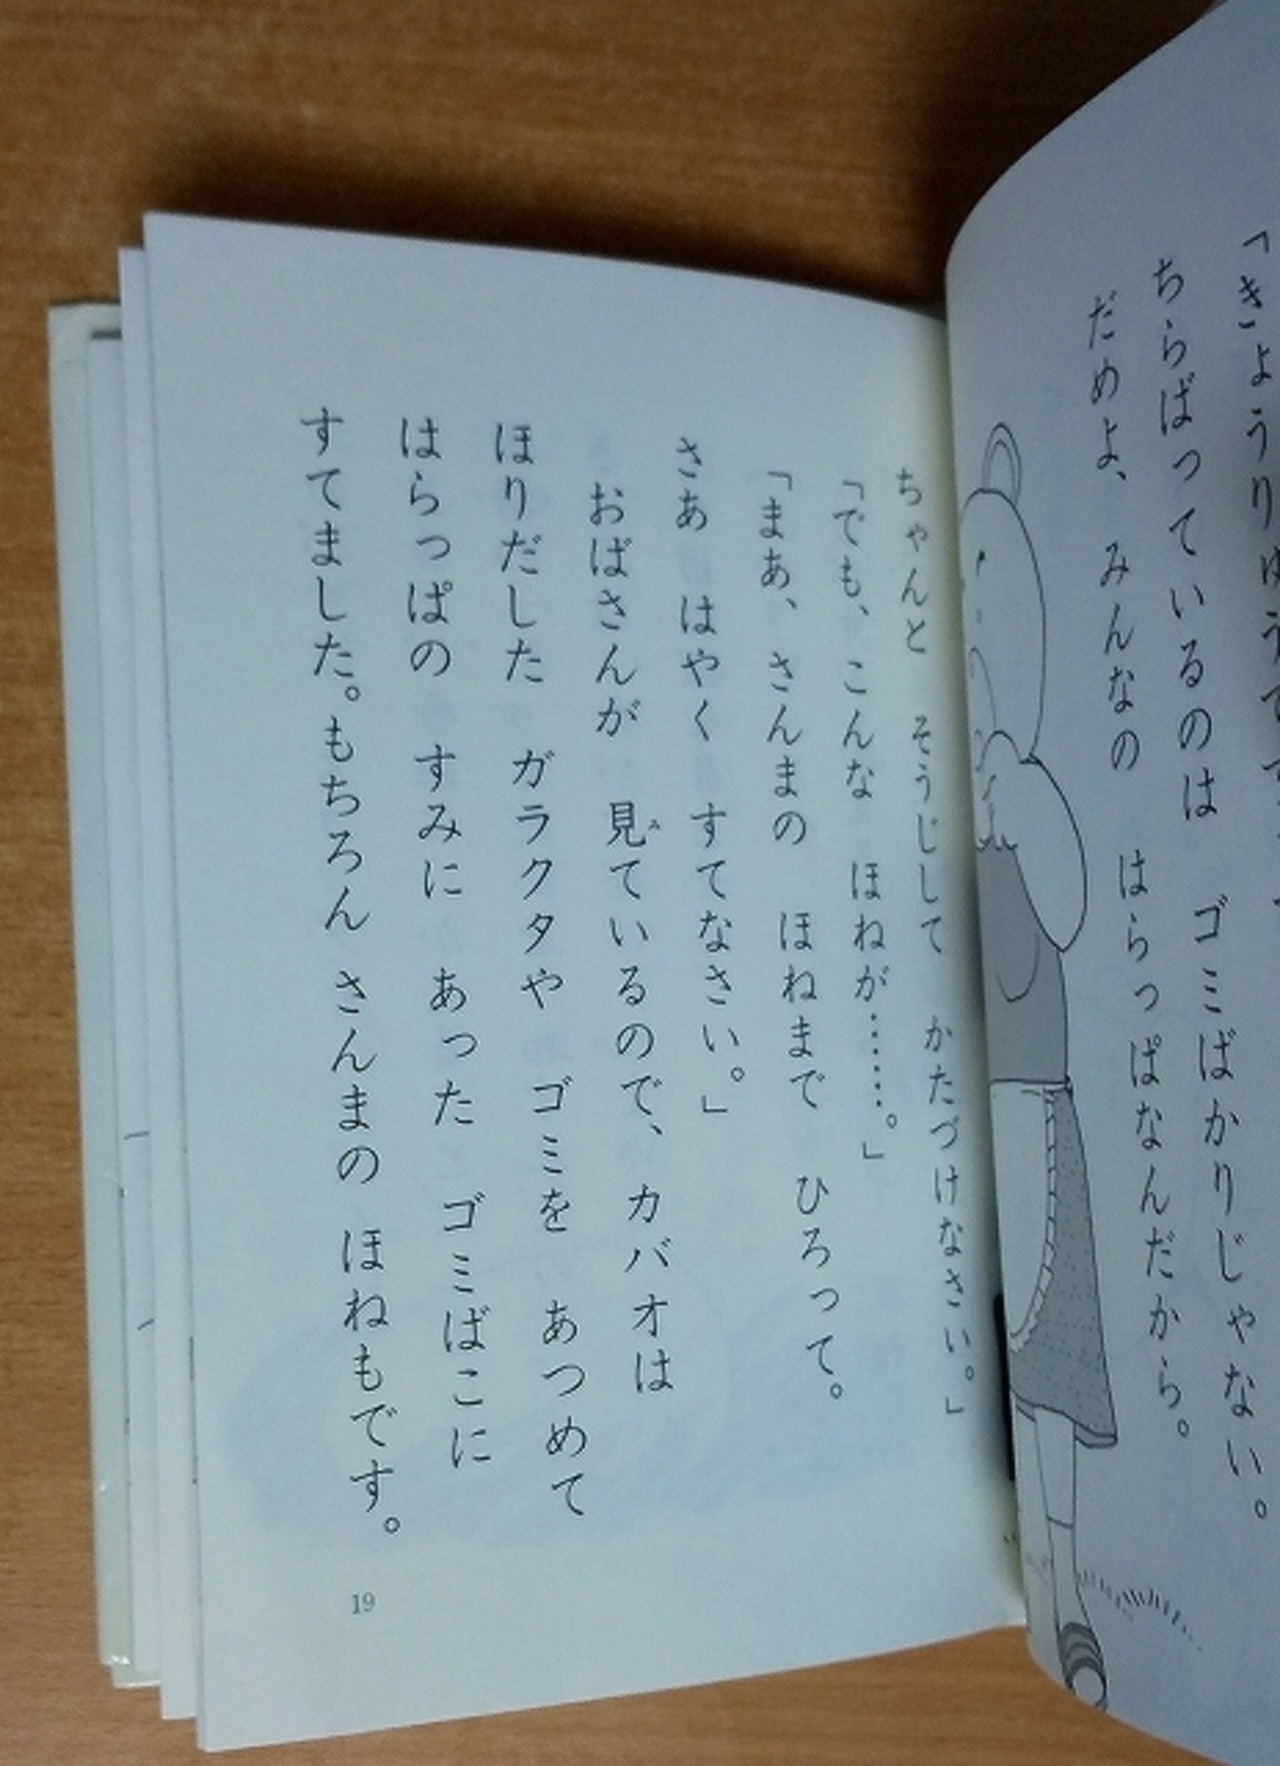 「きょうりゅうです
ちらばっているのは　ゴミばかりじゃない。
だめよ、　みんなの　はらっぱなんだから。
ちゃんと　そうじして　かたづけなさい。」
「でも、こんな　ほねが……。」
「まあ、さんまの　ほねまで　ひろって。
さあ　はやく　すてなさい。」
おばさんが　見ているので、カバオは
ほりだした　ガラクタや　ゴミを　あつめて
はらっぱの　すみに　あった　ゴミばこに
すてました。もちろん　さんまの　ほねもです。
19